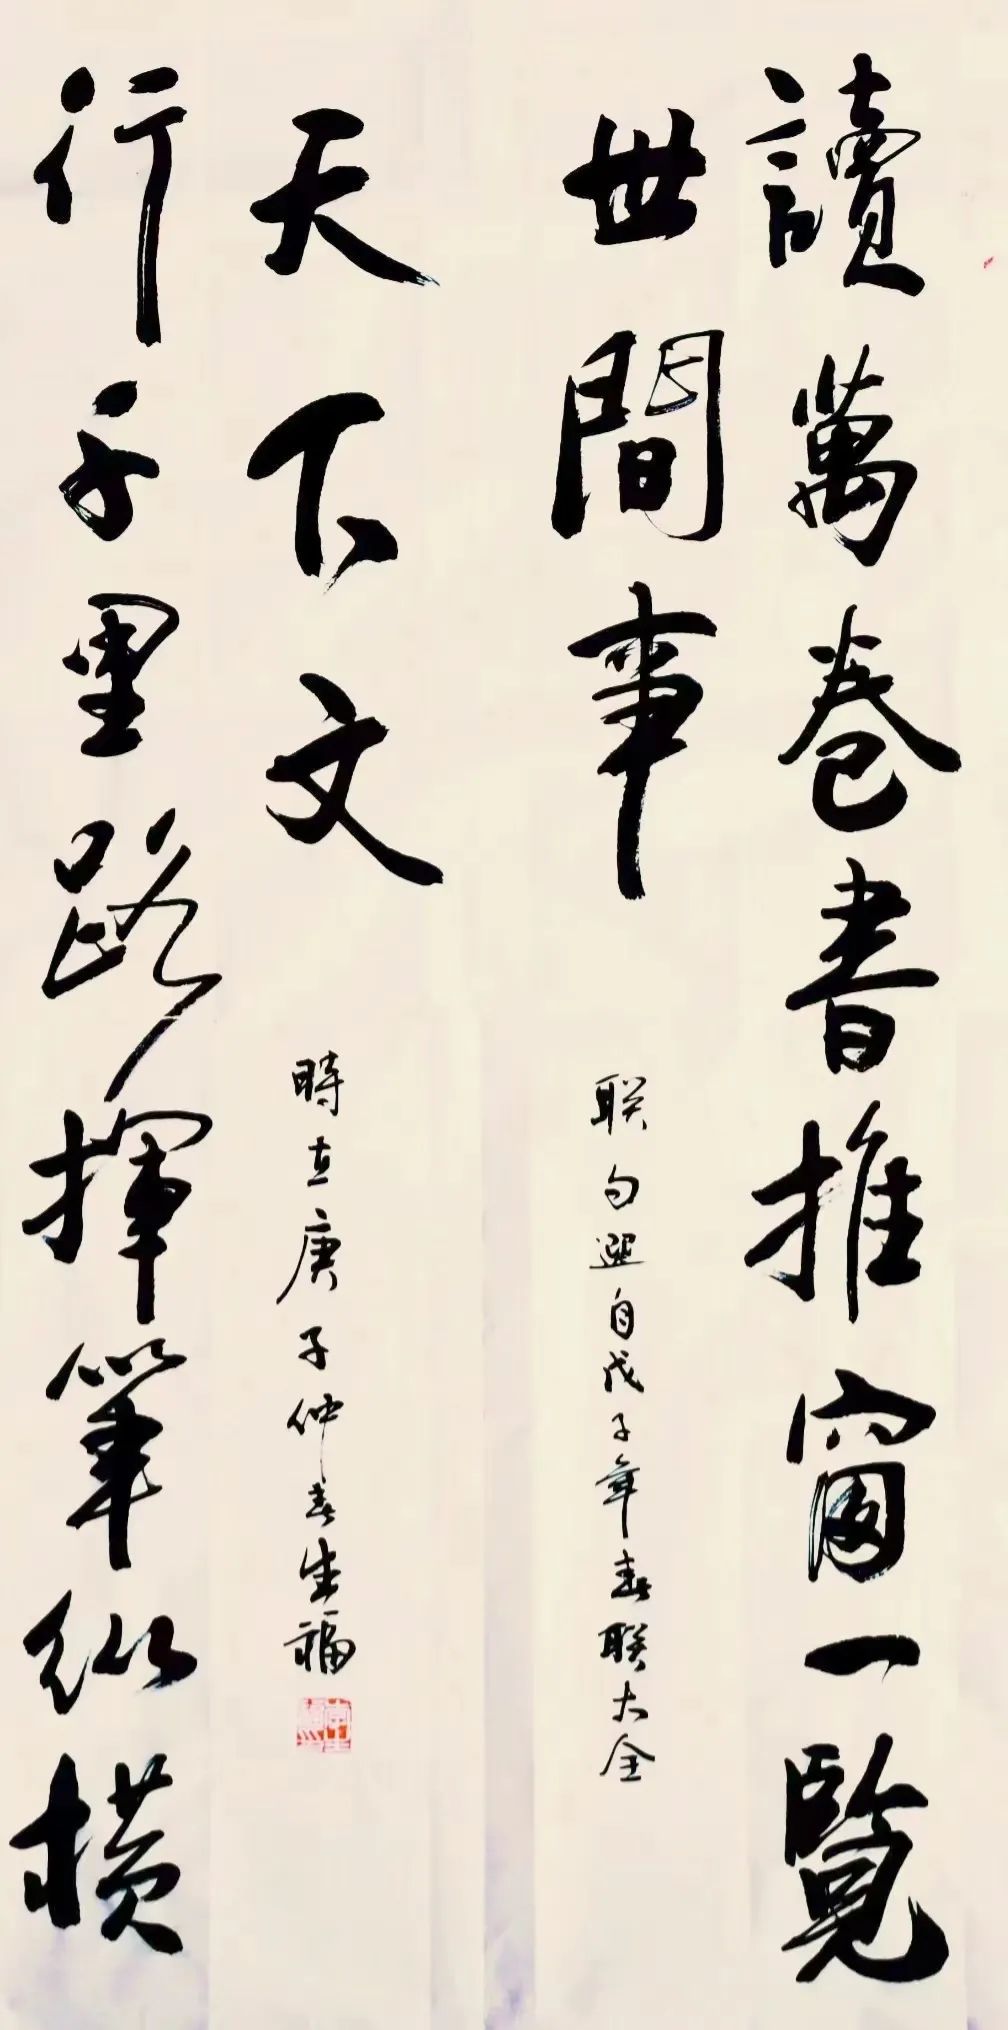 讀萬卷書推窗一覽
世間事
联句選自戊子年春联大全
行千里路揮筆縱橫
天下文
時在庚子仲春生福